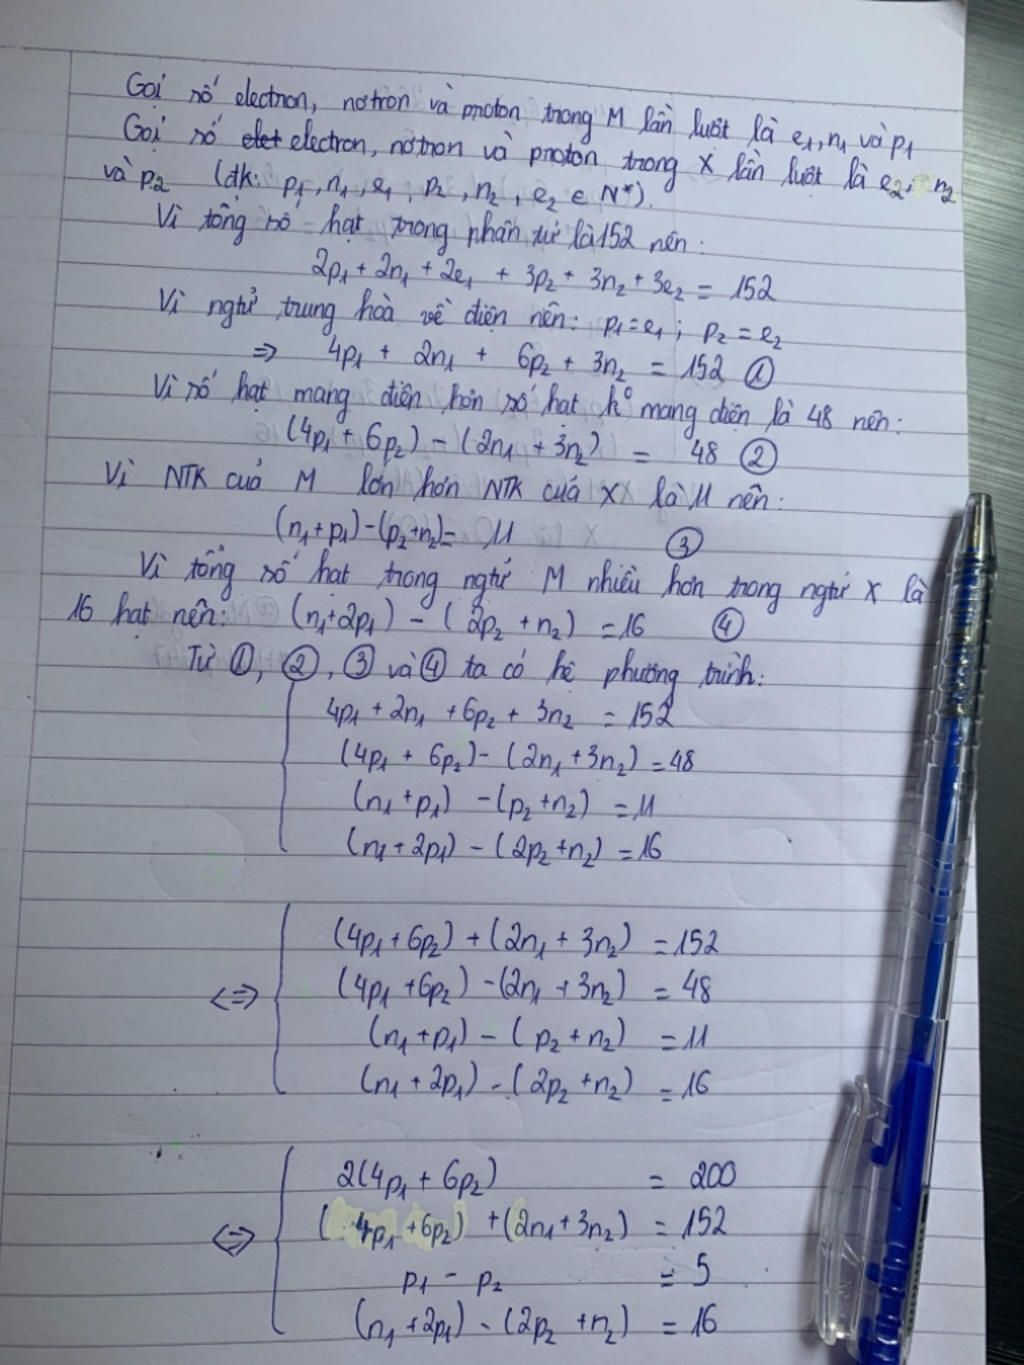 Gọi số electron, nơtron và proton trong M lần lượt là e₁, n₁ và p₁
Gọi số elet electron, nơtron và proton trong X lần lượt là e₂, n₂
và p₂ (đk: p₁, n₁, e₁, p₂, n₂, e₂ ∈ N*).
Vì tổng số hạt trong phân tử là 152 nên:
2p₁ + 2n₁ + 2e₁ + 3p₂ + 3n₂ + 3e₂ = 152
Vì ngtử trung hoà về điện nên: p₁ = e₁ ; p₂ = e₂
⇒ 4p₁ + 2n₁ + 6p₂ + 3n₂ = 152 ①
Vì số hạt mang điện hơn số hạt k⁰ mang điện là 48 nên:
(4p₁ + 6p₂) - (2n₁ + 3n₂) = 48 ②
Vì NTK của M lớn hơn NTK của X là 11 nên:
(n₁ + p₁) - (p₂ + n₂) = 11 ③
Vì tổng số hạt trong ngtử M nhiều hơn trong ngtử X là
16 hạt nên: (n₁ + 2p₁) - (2p₂ + n₂) = 16 ④
Từ ①, ②, ③ và ④ ta có hệ phương trình:
4p₁ + 2n₁ + 6p₂ + 3n₂ = 152
(4p₁ + 6p₂) - (2n₁ + 3n₂) = 48
(n₁ + p₁) - (p₂ + n₂) = 11
(n₁ + 2p₁) - (2p₂ + n₂) = 16
(4p₁ + 6p₂) + (2n₁ + 3n₂) = 152
⇔ (4p₁ + 6p₂) - (2n₁ + 3n₂) = 48
(n₁ + p₁) - (p₂ + n₂) = 11
(n₁ + 2p₁) - (2p₂ + n₂) = 16
2(4p₁ + 6p₂) = 200
⇔ (4p₁ + 6p₂) + (2n₁ + 3n₂) = 152
p₁ - p₂ = 5
(n₁ + 2p₁) - (2p₂ + n₂) = 16